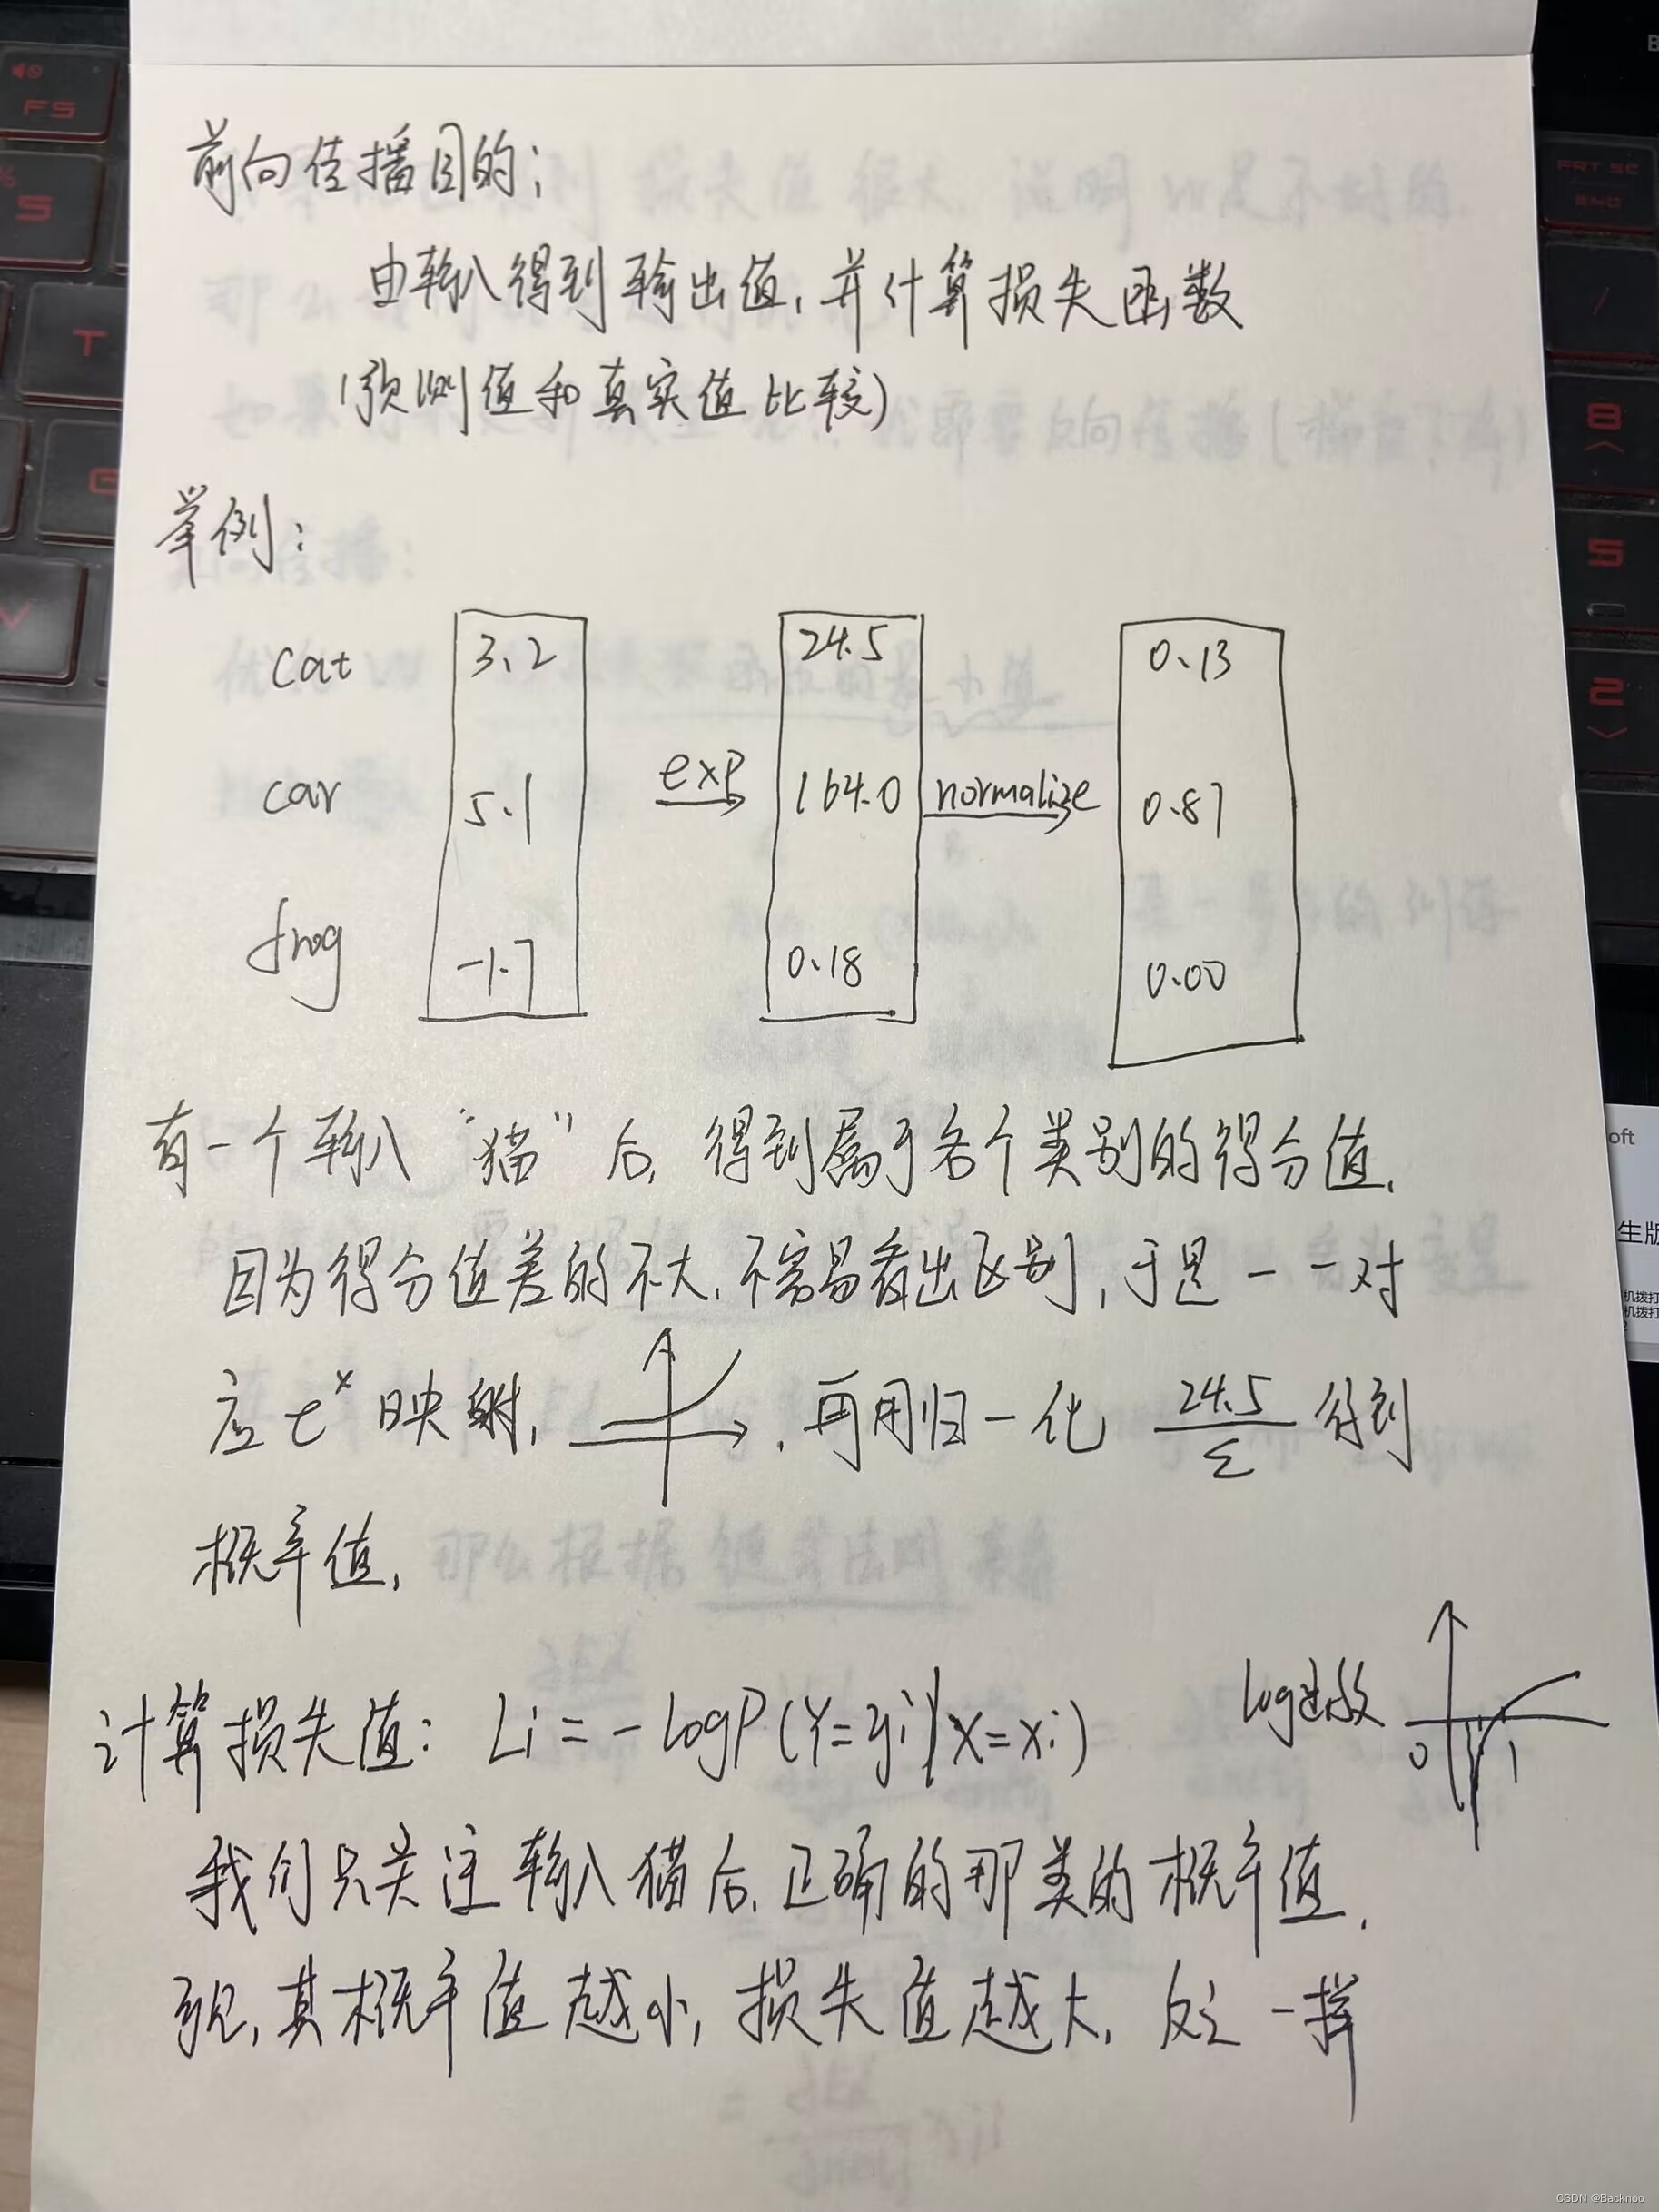 前向传播目的:
由输入得到输出值,并计算损失函数
(预测值和真实值比较)
举例:
cat 3.2 24.5 0.13
car 5.1 exp 164.0 normalize 0.87
frog -1.7 0.18 0.00
有一个输入“猫”后,得到属于各个类别的得分值.
因为得分值差的不大,不容易看出区别,于是一一对
应 e^x 映射, ,再用归一化 24.5/Σ 得到
概率值,
计算损失值: Li = - logP(Y=yi|X=xi) log函数 0 1
我们只关注输入猫后,正确的那类的概率值,
其概率值越小,损失值越大,反之一样
FS
S
T
G
V
PRT SC
END
/
8
5
2
B
oft
生版
机拨打
机拨打
CSDN @Backnoo